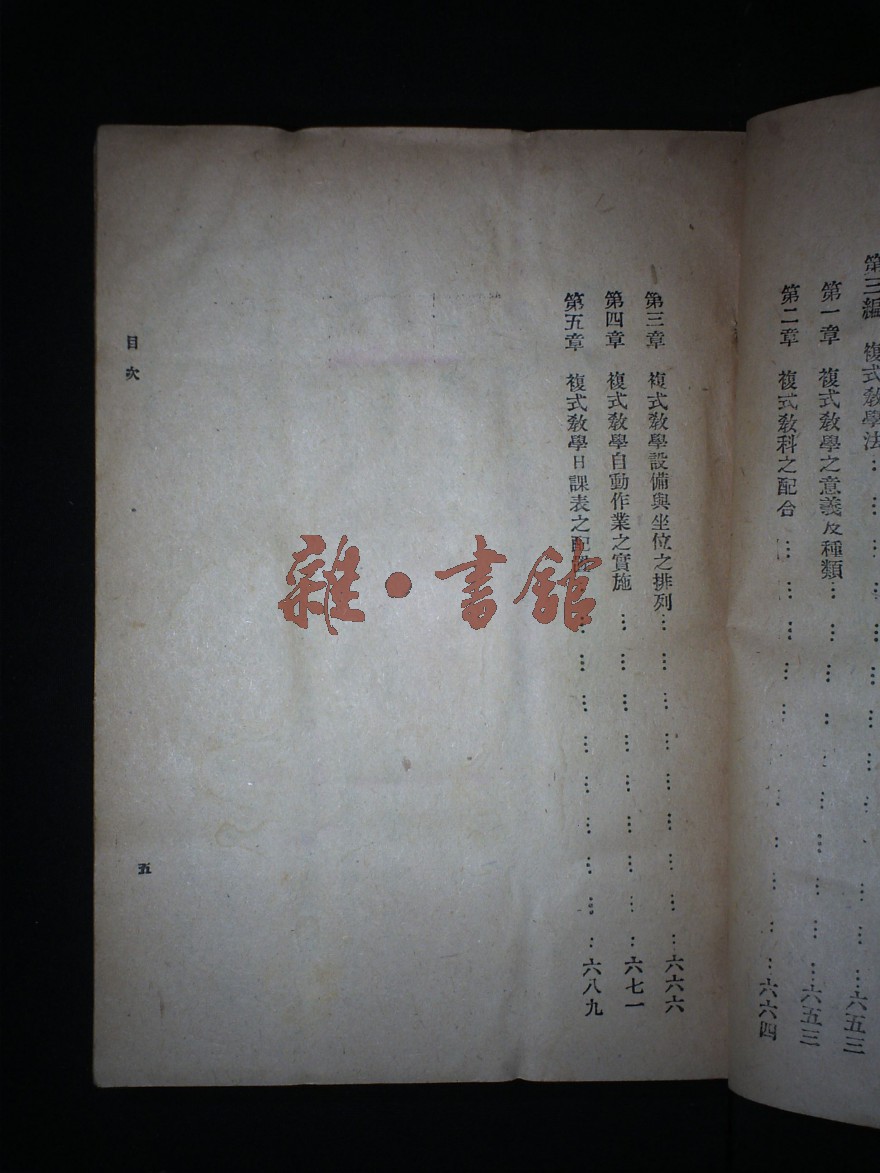 第三編 複式教學法……六五三
第一章 複式教學之意義及種類……六五三
第二章 複式教科之配合……六六四
第三章 複式教學設備與坐位之排列……六六六
第四章 複式教學自動作業之實施……六七一
第五章 複式教學日課表之配……六八九
目次
五
雜・書館